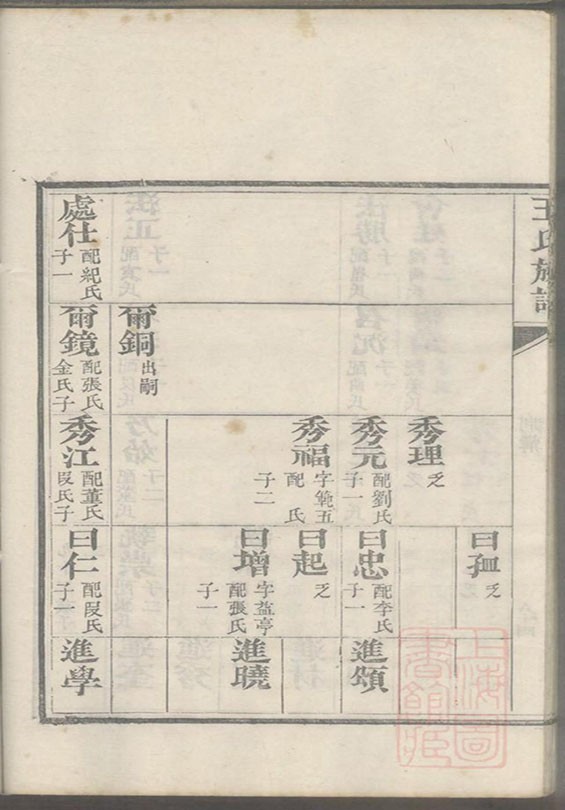 王氏族譜
處仕 配紀氏 子一
爾銅 出嗣
爾鏡 配張氏 金氏子
秀理 乏
秀元 配劉氏 子一
秀福 字範五 配 氏 子二
秀江 配董氏 段氏子
曰孤 乏
曰忠 配李氏 子一
曰起 乏
曰增 字益亭 配張氏 子一
曰仁 配段氏 子一
進頌
進曉
進學
上海圖書館藏